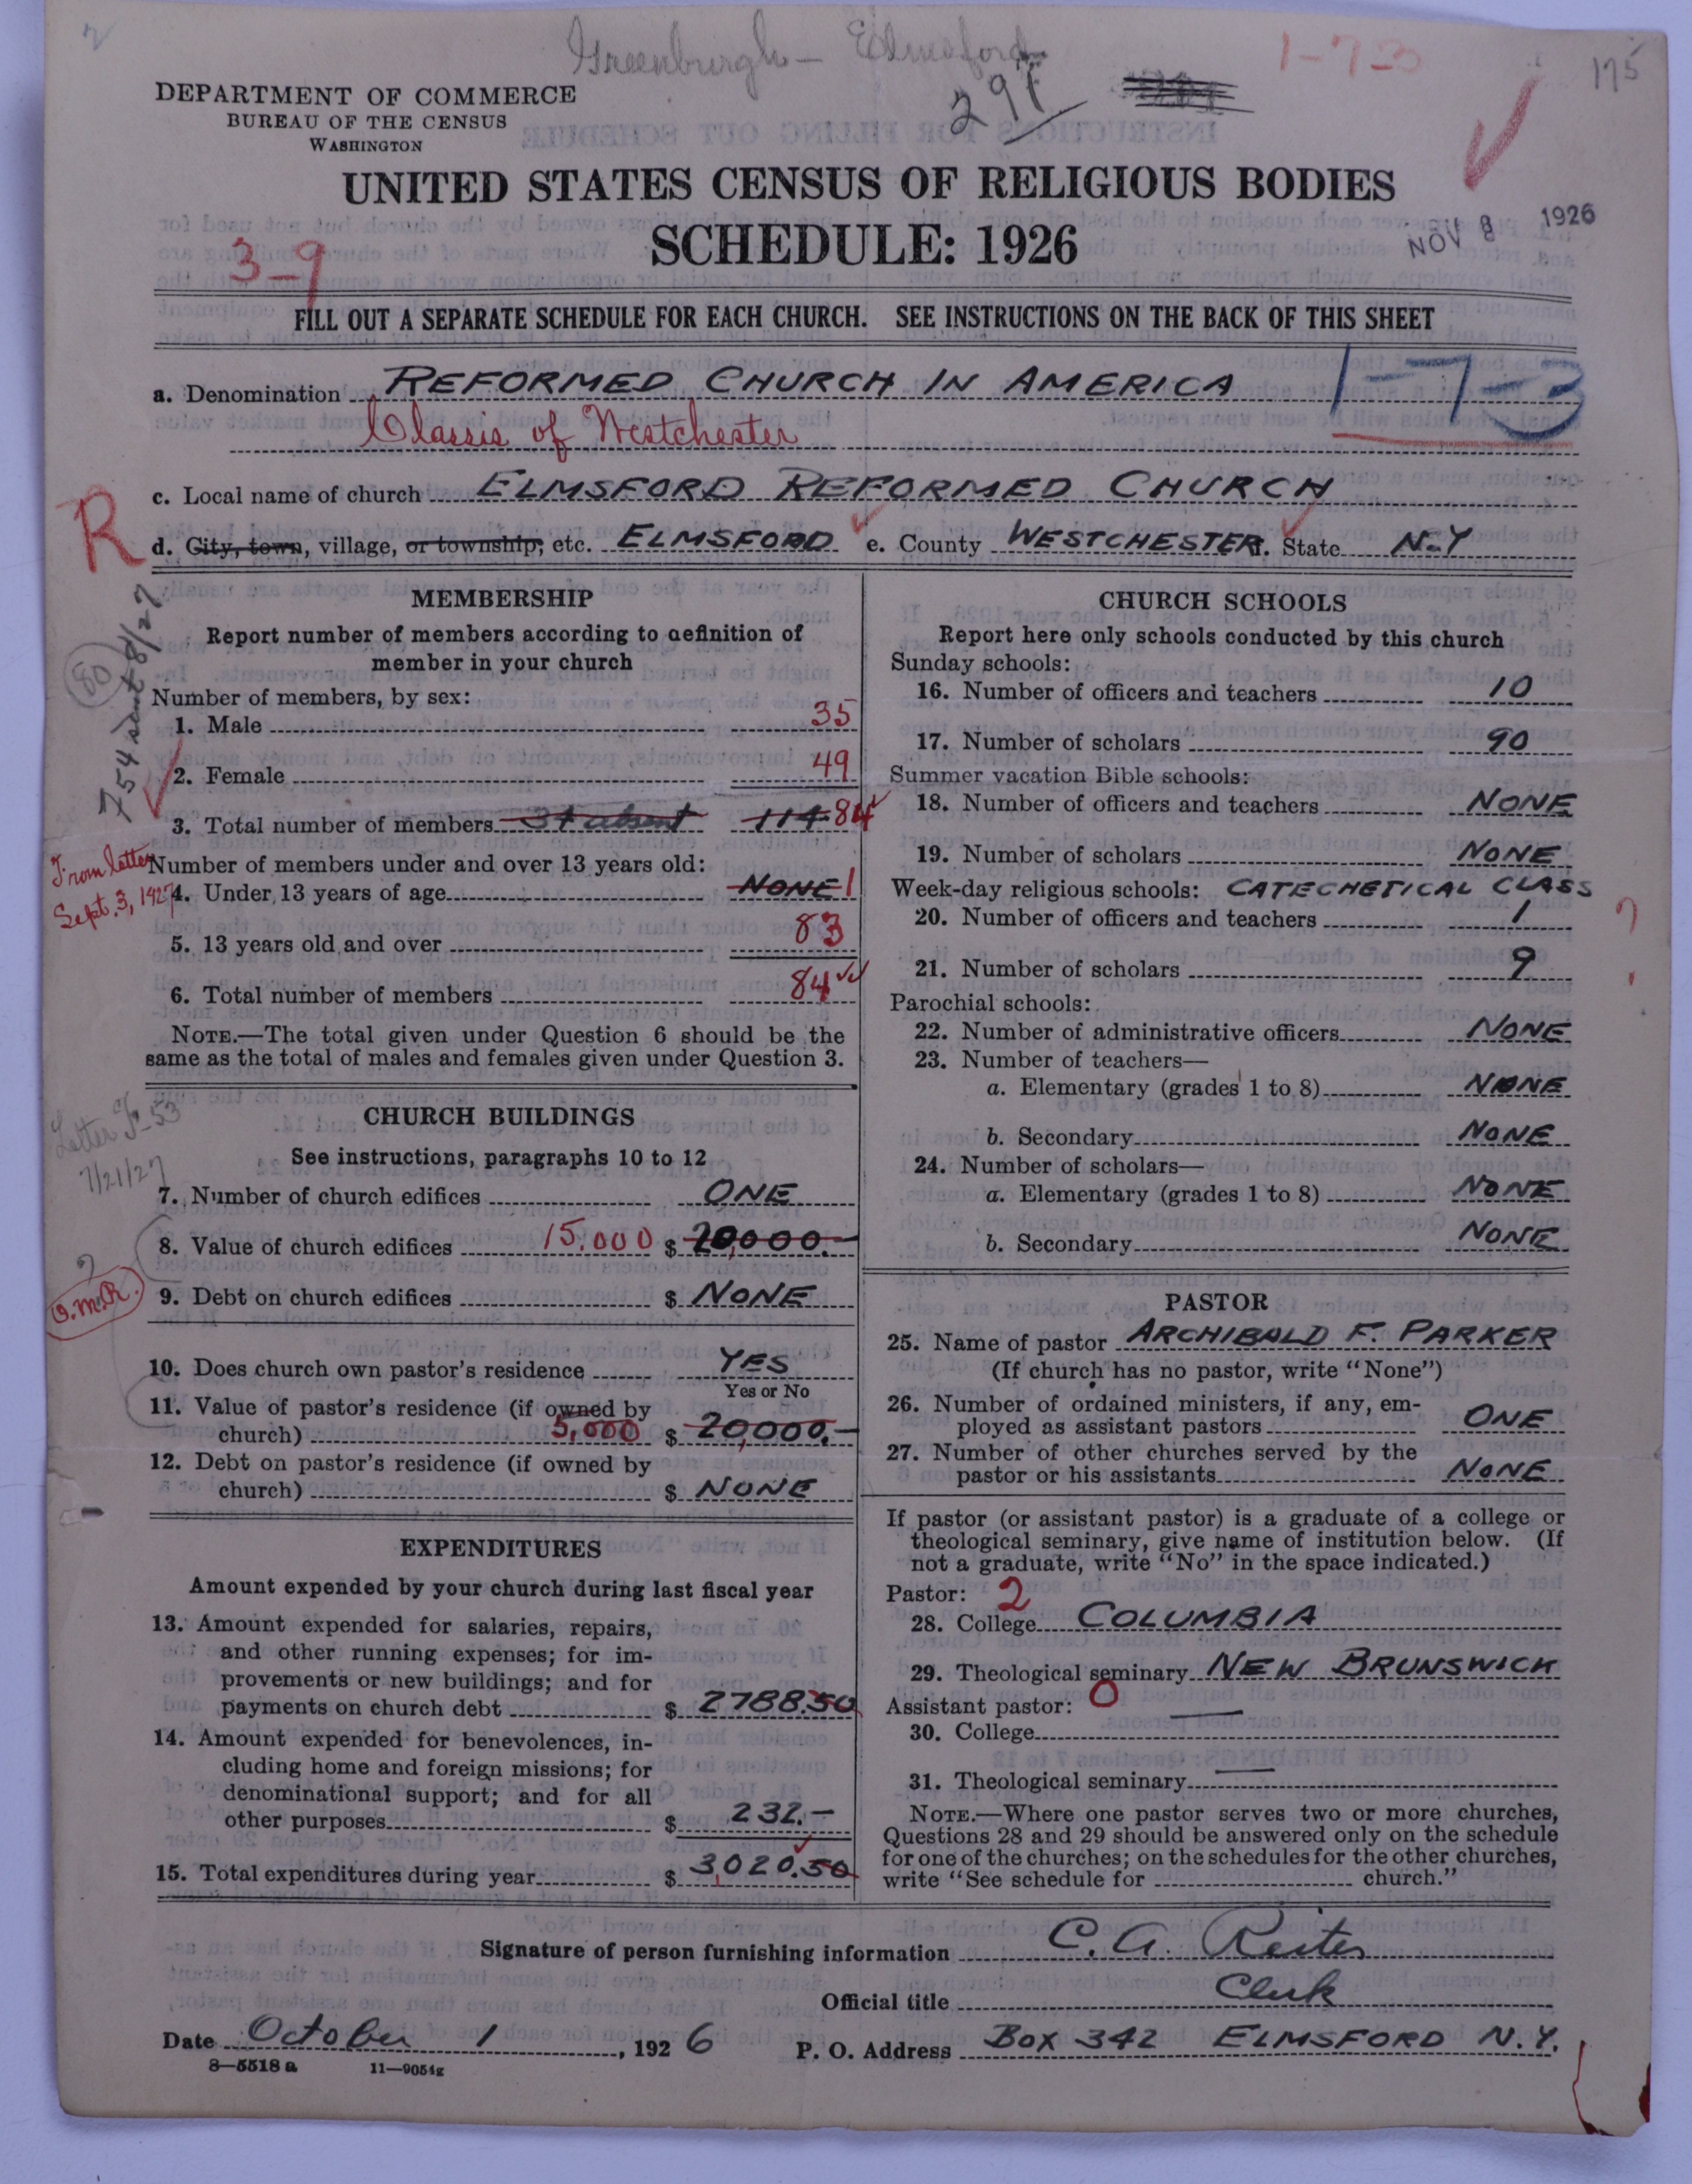 Greenburgh - Elmsford
1-7-3
175
297
DEPARTMENT OF COMMERCE
BUREAU OF THE CENSUS
WASHINGTON
UNITED STATES CENSUS OF RELIGIOUS BODIES
SCHEDULE: 1926
NOV 8 1926
3-9
FILL OUT A SEPARATE SCHEDULE FOR EACH CHURCH. SEE INSTRUCTIONS ON THE BACK OF THIS SHEET
a. Denomination REFORMED CHURCH IN AMERICA 1-7-3
Classis of Westchester
c. Local name of church ELMSFORD REFORMED CHURCH
R
d. City, town, village, or township, etc. ELMSFORD e. County WESTCHESTER f. State N-Y
MEMBERSHIP
Report number of members according to definition of
member in your church
Number of members, by sex:
1. Male 35
2. Female 49
3. Total number of members 34 absent 114 84
Number of members under and over 13 years old:
4. Under 13 years of age NONE 1
5. 13 years old and over 83
6. Total number of members 84
NOTE.—The total given under Question 6 should be the
same as the total of males and females given under Question 3.
80
754 sent 8/27
From letter
Sept. 3, 1927
CHURCH BUILDINGS
See instructions, paragraphs 10 to 12
7. Number of church edifices ONE
8. Value of church edifices 15,000 $ 20,000.—
9. Debt on church edifices $ NONE
10. Does church own pastor's residence YES
Yes or No
11. Value of pastor's residence (if owned by
church) 5,000 $ 20,000.—
12. Debt on pastor's residence (if owned by
church) $ NONE
Letter
7/21/27
EXPENDITURES
Amount expended by your church during last fiscal year
13. Amount expended for salaries, repairs,
and other running expenses; for im-
provements or new buildings; and for
payments on church debt $ 2788.50
14. Amount expended for benevolences, in-
cluding home and foreign missions; for
denominational support; and for all
other purposes $ 232.—
15. Total expenditures during year $ 3,020.50
CHURCH SCHOOLS
Report here only schools conducted by this church
Sunday schools:
16. Number of officers and teachers 10
17. Number of scholars 90
Summer vacation Bible schools:
18. Number of officers and teachers NONE
19. Number of scholars NONE
Week-day religious schools: CATECHETICAL CLASS
20. Number of officers and teachers 1
21. Number of scholars 9
Parochial schools:
22. Number of administrative officers NONE
23. Number of teachers—
a. Elementary (grades 1 to 8) NONE
b. Secondary NONE
24. Number of scholars—
a. Elementary (grades 1 to 8) NONE
b. Secondary NONE
PASTOR
25. Name of pastor ARCHIBALD F. PARKER
(If church has no pastor, write "None")
26. Number of ordained ministers, if any, em-
ployed as assistant pastors ONE
27. Number of other churches served by the
pastor or his assistants NONE
If pastor (or assistant pastor) is a graduate of a college or
theological seminary, give name of institution below. (If
not a graduate, write "No" in the space indicated.)
Pastor: 2
28. College COLUMBIA
29. Theological seminary NEW BRUNSWICK
Assistant pastor: 0
30. College
31. Theological seminary
NOTE.—Where one pastor serves two or more churches,
Questions 28 and 29 should be answered only on the schedule
for one of the churches; on the schedules for the other churches,
write "See schedule for church."
Signature of person furnishing information C. A. Reiter
Official title Clerk
Date October 1, 1926 P. O. Address BOX 342 ELMSFORD N.Y.
8—5518 a 11—9054g